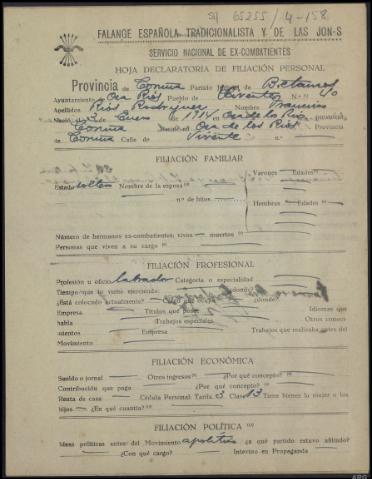 SH 65255 / 4-158
FALANGE ESPAÑOLA TRADICIONALISTA Y DE LAS JON-S
SERVICIO NACIONAL DE EX-COMBATIENTES
HOJA DECLARATORIA DE FILIACIÓN PERSONAL
Provincia de Coruña Partido Betanzos
Ayuntamiento Oza Ríos Pueblo de N.º
Apellidos Ríos Rodríguez Nombre
Nació Enero 1914 en Oza de los Ríos, provincia
Coruña Oza de los Ríos Provincia
de Coruña Calle de n.º
FILIACIÓN FAMILIAR
Varones Edades
Estado soltero Nombre de la esposa
n.º de hijos
Hembras Edades
Número de hermanos ex-combatientes; vivos — muertos
Personas que viven a su cargo
FILIACIÓN PROFESIONAL
Profesión u oficio labrador Categoría o especialidad
Tiempo que lo viene ejerciendo
¿Está colocado actualmente? ¿Dónde?
Empresa Títulos que posee Idiomas que
habla Trabajos especiales Otros conoci-
mientos Empresa Trabajos que realizaba antes del
Movimiento
FILIACIÓN ECONÓMICA
Sueldo o jornal — Otros ingresos ¿Por qué concepto?
Contribución que paga ¿Por qué concepto?
Renta de casa Cédula Personal: Tarifa 3 Clase 13 Tiene bienes la mujer o los
hijos — ¿En qué cuantía?
FILIACIÓN POLÍTICA
Ideas políticas antes del Movimiento apolítico ¿a qué partido estuvo afiliado?
¿Con qué cargo? Intervino en Propaganda